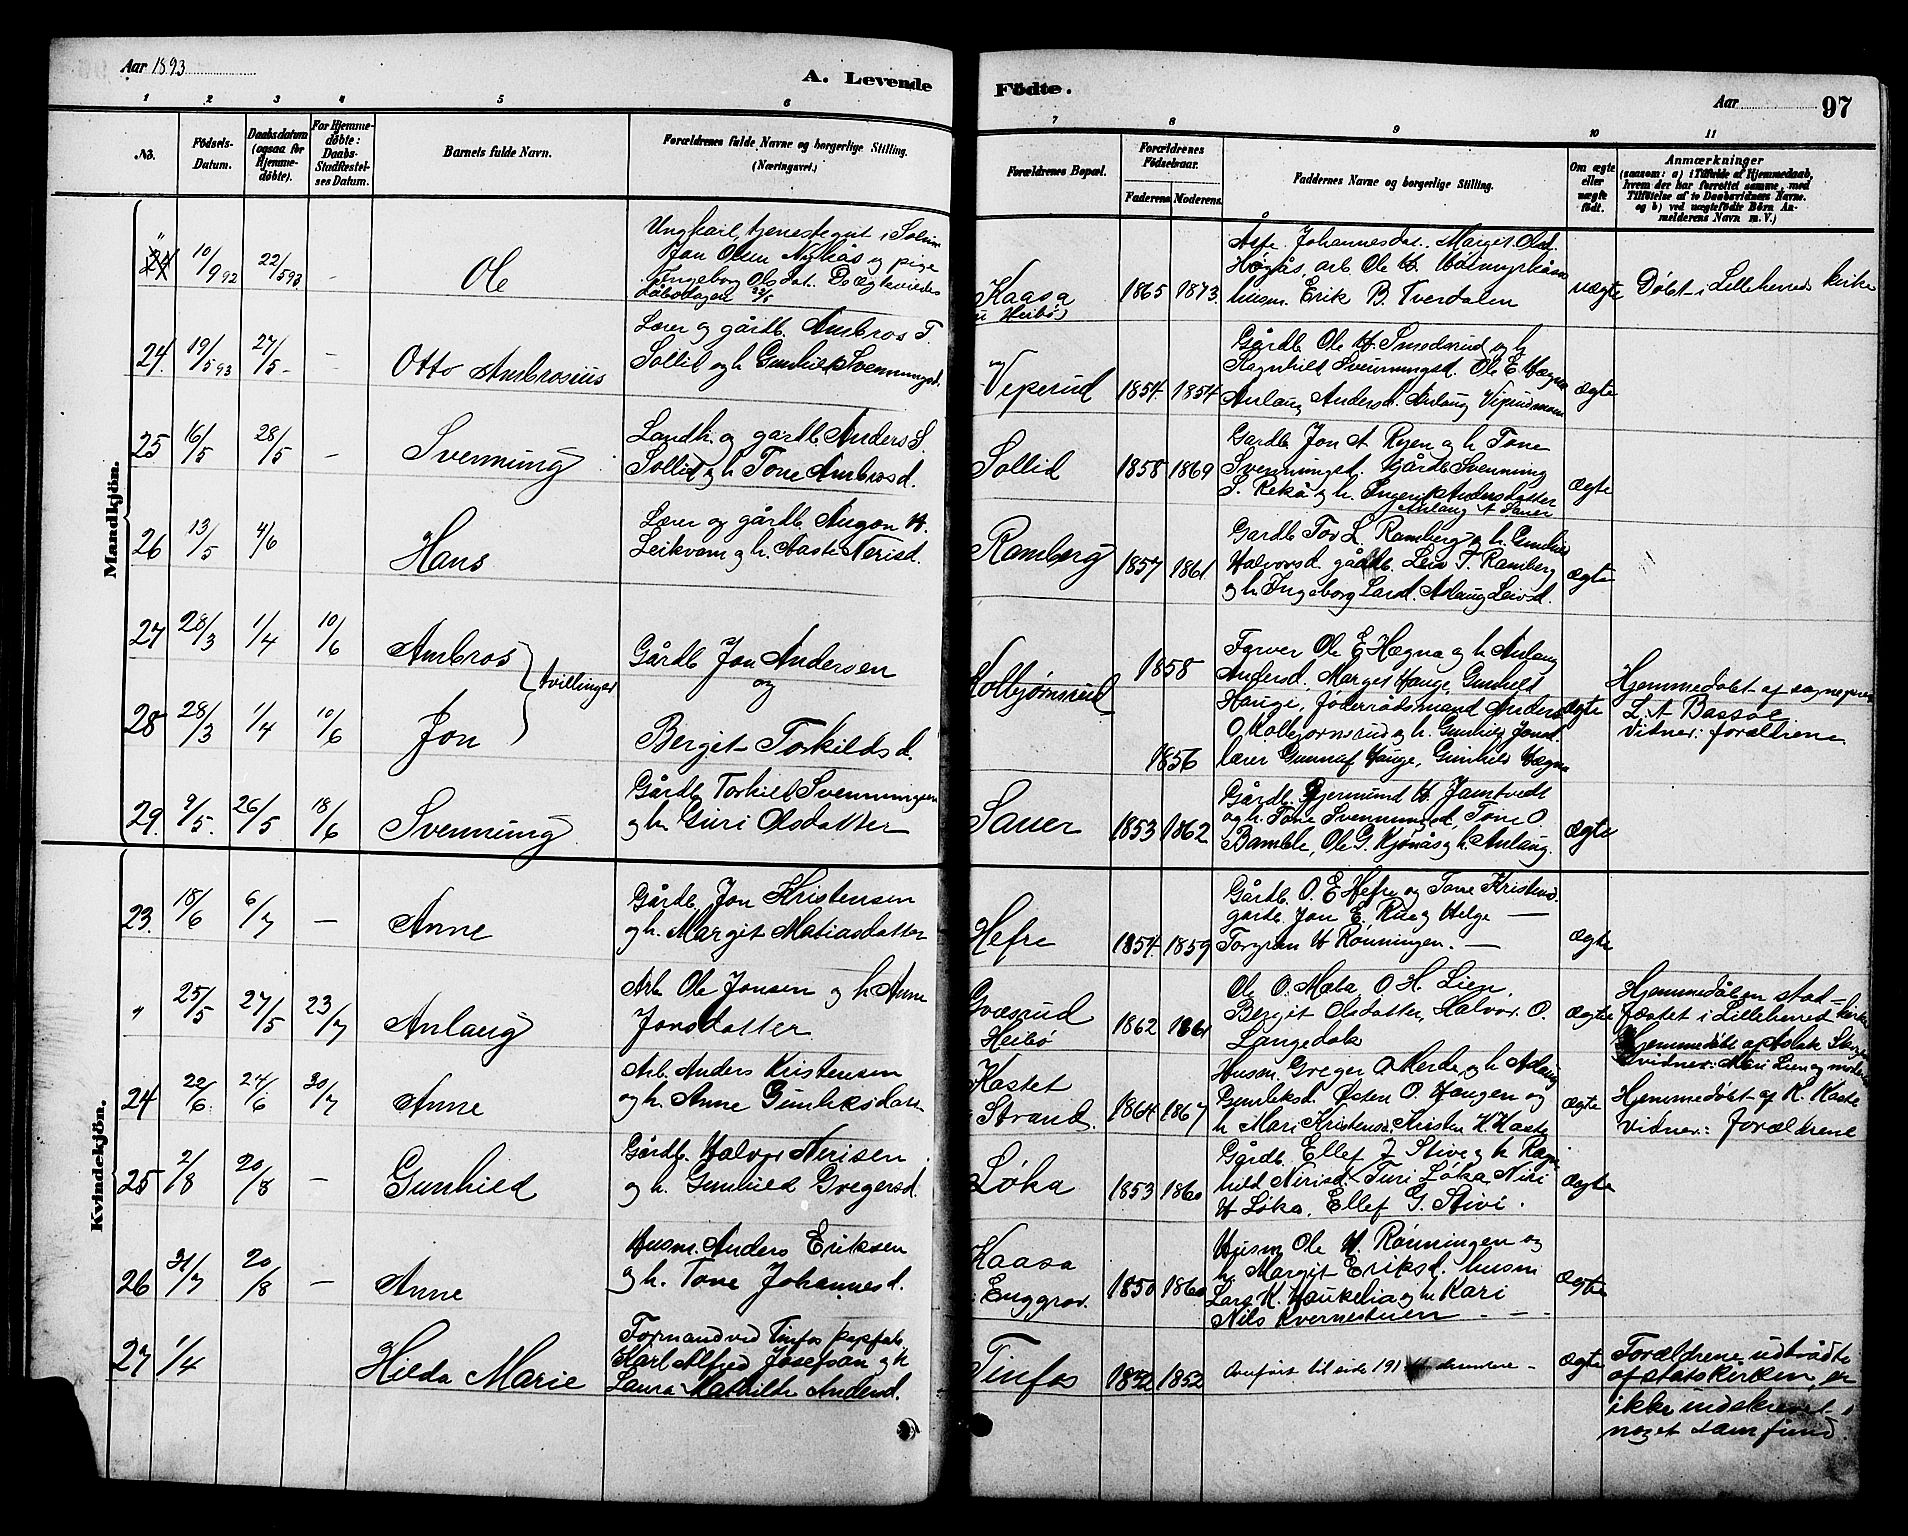 Aar 1893
A. Levende
Fødte.
Aar 97
1 2 3 4 5 6 7 8 9 10 11
No.
Fødsels-
Datum.
Daabsdatum
(ogsaa for
Hjemme-
døbte).
For Hjemme-
døbte:
Daabs-
Stadfæstel-
ses Datum.
Barnets fulde Navn.
Forældrenes fulde Navne og borgerlige Stilling.
(Næringsvei.)
Forældrenes Bopæl.
Forældrenes
Fødselsaar.
Faderens Moderens
Faddernes Navne og borgerlige Stilling.
Om ægte
eller
uægte
født.
Anmærkninger
(saasom: a) i Tilfælde af Hjemmedaab,
hvem der har forrettet samme, med
Tilføielse af to Daabsvidners Navne.
og b) ved uægtefødte Børn An-
melderens Navn m. V.)
Mandkjön.
" 10/9 92 22/5 93 - Ole
Ungkarl, tjenestegut i
Jon Olsen og pige
Ingeborg Olsdat.
Kaasa
u Heibø
1865 1873
Johannesdat. Marget Olsd.
arb. Ole H.
husm. Erik B. Tverdalen
uægte
Døbt i Lilleherred kirke
24. 19/5 93 27/5 - Otto Ambrosius
Lærer og gårdb. Ambros T.
Sollid og h. Gunhild Svenningsd.
Veperud
1854. 1854
Gårdb. Ole H. Smedsrud og h
Ragnhild Svenningsd. Ole E. Hægna
Anlaug Andersd. Anlaug
ægte
25 16/5 28/5 - Svenning
Landh. og gårdb. Anders S.
Sollid og h. Tone Ambrosd.
Sollid
1858 1869
Gardb. Jon A. Ryen og h. Tone
Svenningsd. Gårdb. Svenning
S. Rekå og h. Ingerid Andersdatter
Anlaug A. Sauer
ægte
26 13/5 4/6 Hans
Lærer og gårdb. Augon H.
Leikvam og h. Aaste Nerisd.
Ramberg
1857 1861
Gardb. Tov L. Ramberg og h. Gunhild
Halvorsd. gårdb. Leiv T. Ramberg
og h. Ingeborg Larsd. Aslaug Leivsd.
ægte
27 28/3 1/4 10/6 Ambros
tvillinger
Gårdb. Jon Andersen
og
28 28/3 1/4 10/6 Jon
Bergit Torkildsd.
Kolbjørnsrud
1858
1856
Farver Ole E. Hægna og h. Anlaug
Andersd., Marget Hauge, Gunhild
Hauge, Anders
O Kolbjørnsrud og h. Gunhild Jonsd.
lærer Gunnuf Hauge, Gunhild Hægna
ægte
Hjemmedøbt af sognepræst
L. A. Bassøe
Vidner: forældrene
29. 9/5. 26/5 18/6 Svenning
Gårdb. Torkild Svenningsen
og h. Guri Olsdatter
Sauer
1853 1862
Gårdb. Gjermund H. Jamtvedt
og h. Tone Svenningsd., Tone O
Bamble, Ole G. Kjönås og h. Anlaug.
ægte
Kvindekjön.
23. 18/6 6/7 - Anne
Gårdb. Jon Kristensen
og h. Margit Matiasdatter
Hefre
1854. 1859
Gårdb. O. E. Hefre og Tone Kristensd.
gardb. Jon E. Rue og Helge -
Torgrim H. Rønningen. -
ægte
" 25/5 27/5 23/7 Anlaug
Arb. Ole Jonsen og h. Anne
Jonsdatter
Gvæsrud
Heibø
1862 1861
Ole O. Mæla O. H. Lien
Bergit Olsdatter, Halvor O.
Langedok
ægte
Hjemmedåben stad-
fæstet i Lilleherred kirke
Hjemmedøbt af Aslak
vidner: Mari Lien og moderen
24 22/6 24/6 30/7 Anne
Arb. Anders Kristensen
og h. Anne Gunleksdatter
Kastet
Strand.
1864 1867
Husm. Greger O Merde og h. Aslaug
Gunleksd. Østen O. Haugen og
h. Mari Kristensd. Kristen K Kaste
ægte
Hjemmedøbt af K. Kaste
Vidner: forældrene
25 2/8 20/8 - Gunhild
Gårdb. Halvor Nerisen
og h. Gunhild Gregersd.
Løka
1853 1860
Gårdb. Ellef J Stivi og h. Ragn-
hild Nerisd. Turi Løka, Niri
H Løka, Ellef G. Stivi.
ægte
26 31/7 20/8 - Anne
Husm. Anders Eriksen
og h. Tone Johannesd.
Kaasa
Enggrav.
1850 1860
Husm. Ole H. Rønningen og
h. Margit Eriksd. husm
Lars K. Haukelia og h Kari
Nils Kvernestuen - -
ægte
27 1/4 Hilda Marie
Formand ved Tinfos papfab.
Karl Alfred Josefsen og h.
Laura Mathilde Andersd.
Tinfos
1852
Overført til side 191
ægte
Forældrene udtrådte
af statskirken, er
ikke indskrevet i
noget samfund.